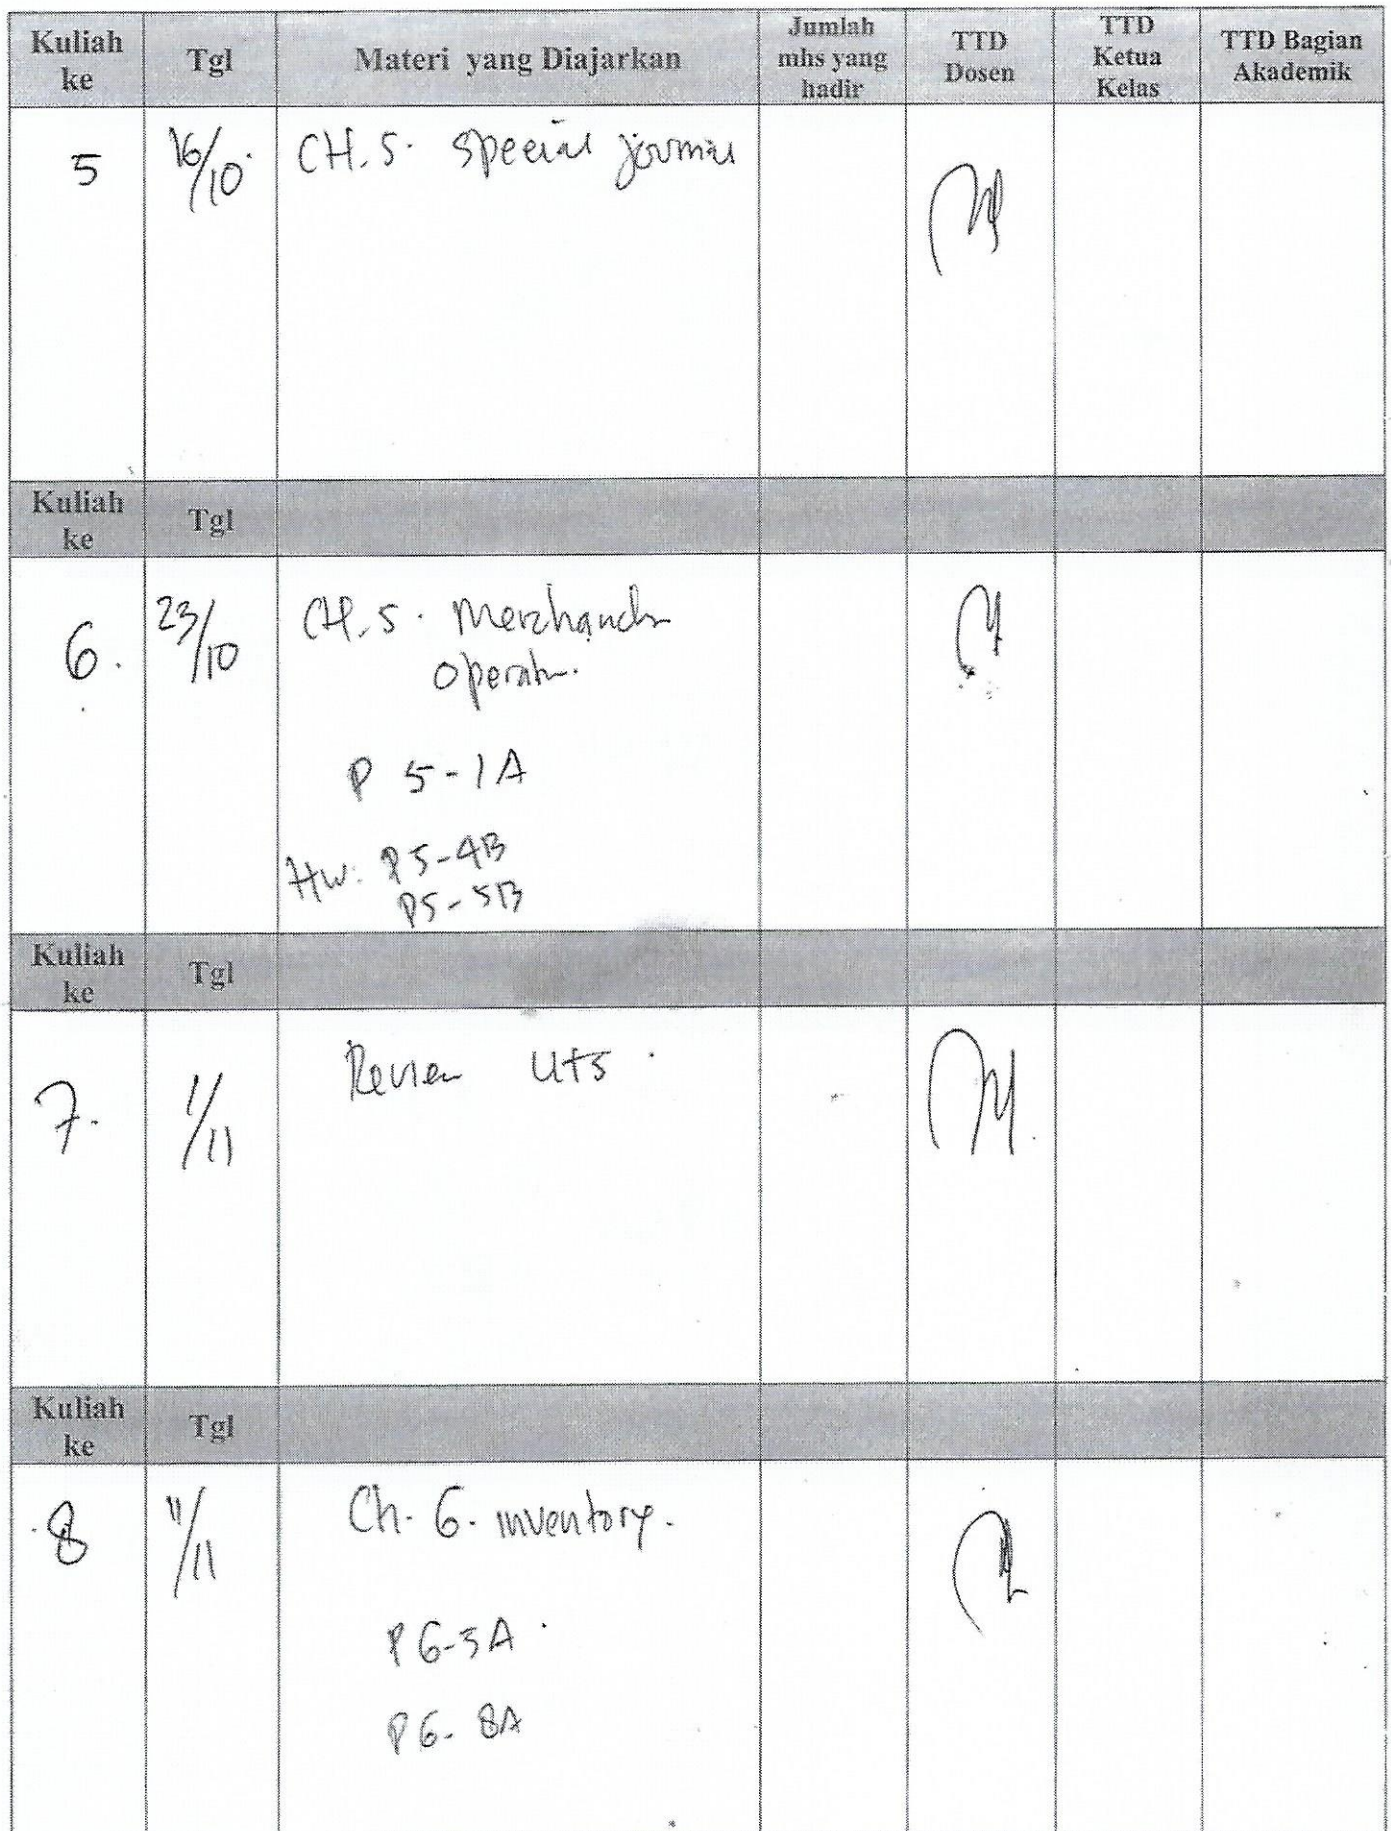 Kuliah ke
Tgl
Materi yang Diajarkan
Jumlah mhs yang hadir
TTD Dosen
TTD Ketua Kelas
TTD Bagian Akademik
5
16/10
CH. 5. special journal
Kuliah ke
Tgl
6.
23/10
CH. 5. Merchandi
Operat
P 5-1A
HW: P5-4B
P5-5B
Kuliah ke
Tgl
7.
1/11
Review UTS.
Kuliah ke
Tgl
8
11/11
Ch. 6. inventory.
P 6-5A
P 6-8A